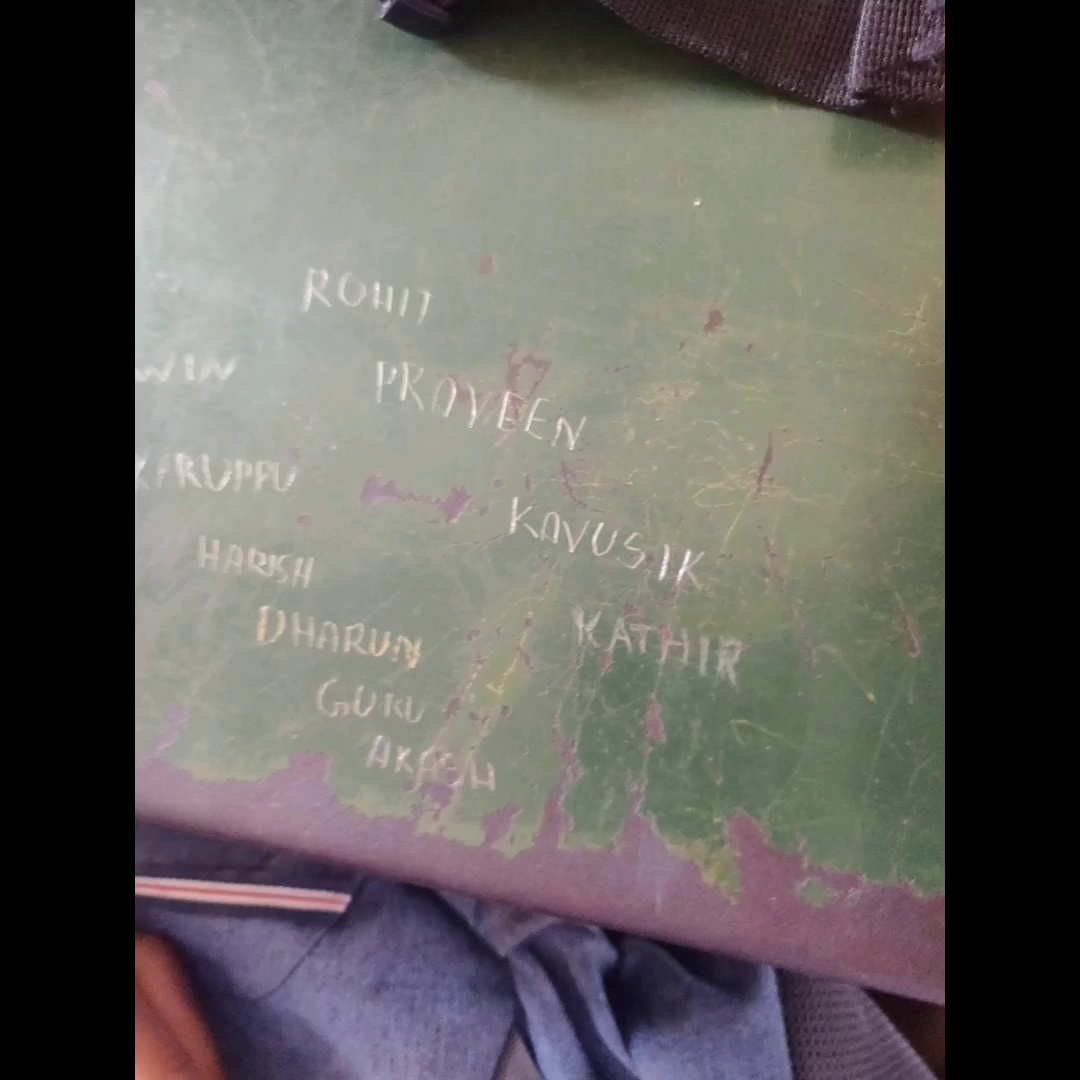 ROHIT
WIN
PRAVEEN
KARUPPU
KAVUSIK
HARISH
DHARUN
KATHIR
GURU
AKASH